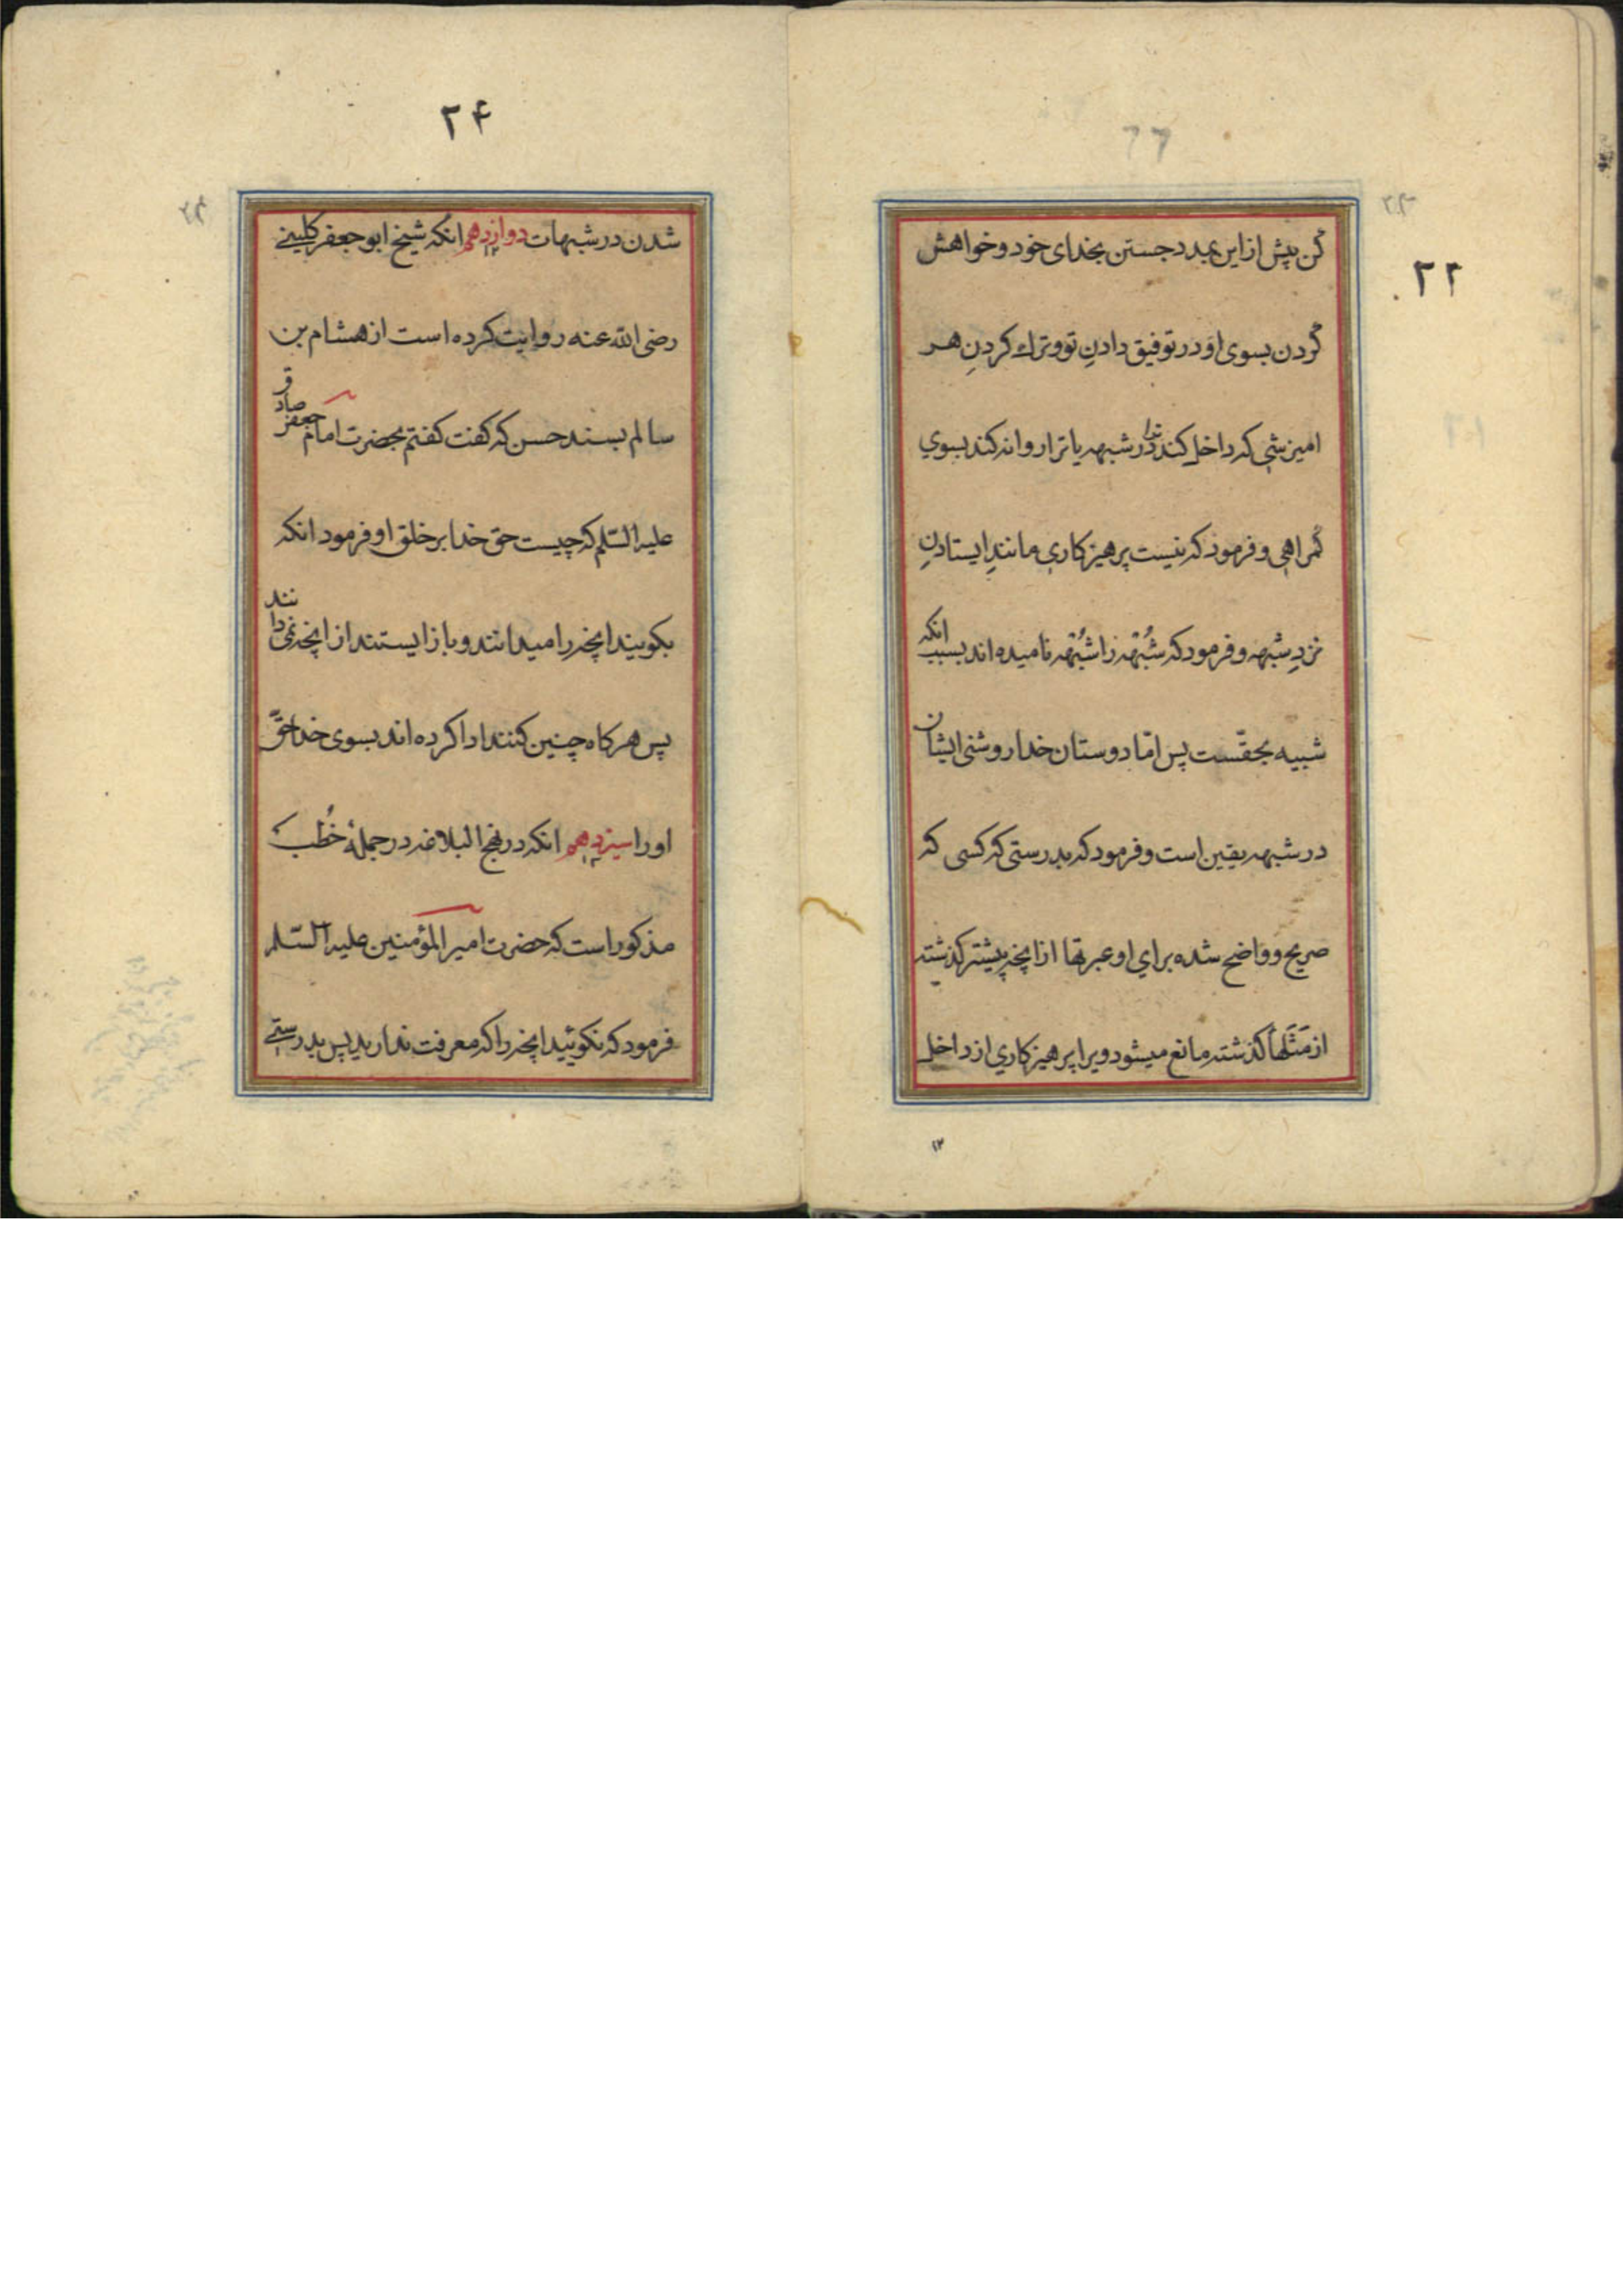 ۲۲
کن پیش از این بمدد جستن بخدای خود و خواهش
کردن بسوی او در توفیق دادنِ تو و ترك کردنِ هر
امیزشی که داخل کند ترا در شبهه یا ترا روانه کند بسوي
کمراهی و فرمود که نیست پرهیزکاري مانندِ ایستادنِ
نزدِ شبهه و فرمود که شُبْهه را شُبْهه نامیده اند بسبب انکه
شبیه بحقّست پس امّا دوستان خدا روشنی ایشان
در شبهه یقین است و فرمود که بدرستی که کسی که
صریح و واضح شده براي او عبرتها از انچه پیشتر کذشته
از مَثَلها کذشته مانع میشود ویرا پرهیزکاري از داخل
۲۴
شدن در شبهات دوازدهم ۱۲ انکه شیخ ابو جعفر کلینے
رضی الله عنه روایت کرده است از هشام بن
سالم بسند حسن که کفت کفتم بحضرت امام جعفر صادق
علیه السّلم که چیست حق خدا بر خلق او فرمود انکه
بکویند انچه را میدانند و باز ایستند از انچه نمی دانند
پس هرکاه چنین کنند ادا کرده اند بسوی خدا حقّ
او را سیزدهم ۱۳ انکه در نهج البلاغه در جملهٔ خُطَب
مذکور است که حضرت امیر المؤمنین علیه السّلم
فرمود که نکوئید انچه را که معرفت ندارید پس بدرستے